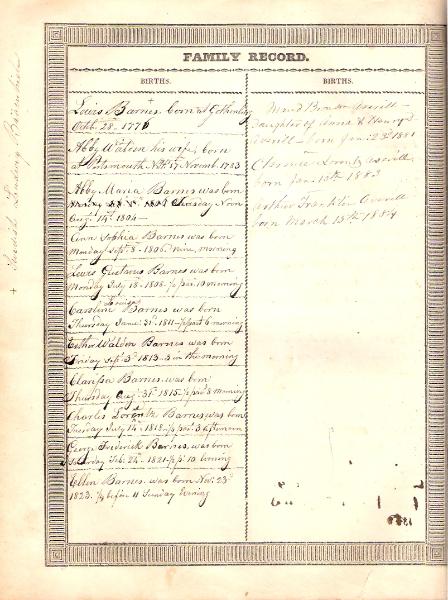 FAMILY RECORD.
BIRTHS.
Lewis Barnes born at Gothenburg
Octbr 28. 1776
Abby Walden his wife born
at Portsmouth NH 17 Novemb. 1783
Abby Maria Barnes was born
Thursday Noon
Augt 14th 1804
Ann Sophia Barnes was born
Monday Sept 8th 1806. Nine, morning
Lewis Gustavus Barnes was born
Monday July 18th 1808. ½ past 10 morning
Louisa
Caroline Barnes was born
Thursday 31st 1811 ½ past 6 morning
Esther Walden Barnes was born
Friday Sept 3d 1813. 3 in the morning
Clarissa Barnes was born
Thursday Aug 31st 1815 ½ past 8 morning
Charles Barnes was born
Tuesday July 14th 1818 ½ past 3 afternoon
George Frederick Barnes, was born
Saturday Feb. 24th 1821 ½ pt 10 Evening
Ellen Barnes was born Nov. 23d
1823. ½ before 11 Sunday Evening
BIRTHS.
Maud Averill
Daughter of & Henry
Averill born Jan 23d 1881
Clarence Averill
born Jan 13th 1883
Arthur Franklin Averill
born March 15th 1884
+ Swedish